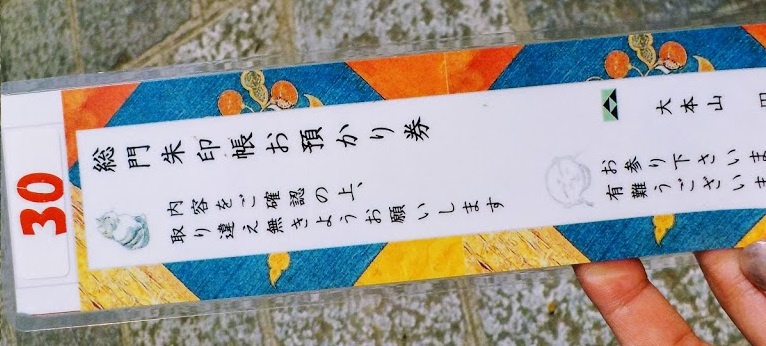 30
総門朱印帳お預かり券
内容をご確認の上、
取り違え無きようお願いします
大本山
お参り下さいま
有難うございま